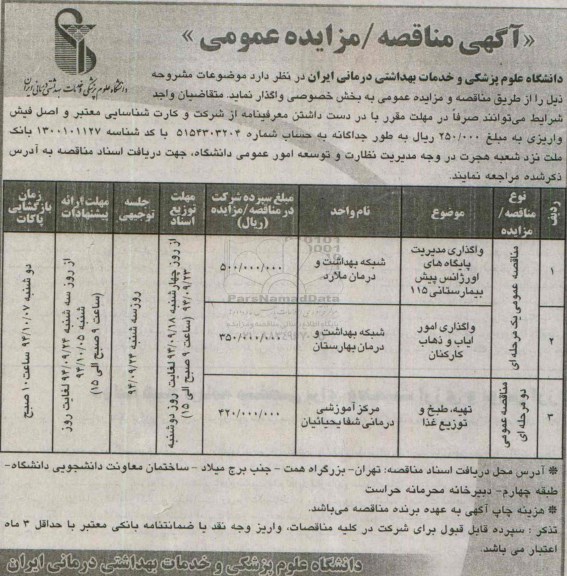 «آگهی مناقصه/مزایده عمومی»
دانشگاه علوم پزشکی و خدمات بهداشتی درمانی ایران
دانشگاه علوم پزشکی و خدمات بهداشتی درمانی ایران در نظر دارد موضوعات مشروحه
ذیل را از طریق مناقصه و مزایده عمومی به بخش خصوصی واگذار نماید. متقاضیان واجد
شرایط می‌توانند صرفاً در مهلت مقرر با در دست داشتن معرفینامه از شرکت و کارت شناسایی معتبر و اصل فیش
واریزی به مبلغ ۲۵۰/۰۰۰ ریال به طور جداگانه به حساب شماره ۵۱۵۴۳۰۳۲۰۴ با کد شناسه ۱۳۰۰۱۰۱۱۲۷ بانک
ملت نزد شعبه هجرت در وجه مدیریت نظارت و توسعه امور عمومی دانشگاه، جهت دریافت اسناد مناقصه به آدرس
ذکرشده مراجعه نمایند.
ردیف
نوع مناقصه/مزایده
موضوع
نام واحد
مبلغ سپرده شرکت در مناقصه/مزایده (ریال)
مهلت توزیع اسناد
جلسه توجیهی
مهلت ارائه پیشنهادات
زمان بازگشایی پاکات
۱
مناقصه عمومی یک مرحله ای
واگذاری مدیریت پایگاه های اورژانس پیش بیمارستانی ۱۱۵
شبکه بهداشت و درمان ملارد
۵۰۰/۰۰۰/۰۰۰
از روز چهارشنبه ۹۳/۰۹/۱۸ لغایت روز دوشنبه ۹۳/۰۹/۲۳ (ساعت ۹ صبح الی ۱۵)
روز سه شنبه ۹۳/۰۹/۲۴
از روز سه شنبه ۹۳/۰۹/۲۴ لغایت روز شنبه ۹۳/۱۰/۰۵ (ساعت ۹ صبح الی ۱۵)
دو شنبه ۹۳/۱۰/۰۷ ساعت ۱۰ صبح
۲
واگذاری امور ایاب و ذهاب کارکنان
شبکه بهداشت و درمان بهارستان
۳۵۰/۰۰۰/۰۰۰
۳
مناقصه عمومی دو مرحله ای
تهیه، طبخ و توزیع غذا
مرکز آموزشی درمانی شفا یحیائیان
۳۲۰/۰۰۰/۰۰۰
ParsNamadData
※ آدرس محل دریافت اسناد مناقصه: تهران- بزرگراه همت - جنب برج میلاد - ساختمان معاونت دانشجویی دانشگاه-
طبقه چهارم- دبیرخانه محرمانه حراست
※ هزینه چاپ آگهی به عهده برنده مناقصه می‌باشد.
تذکر : سپرده قابل قبول برای شرکت در کلیه مناقصات، واریز وجه نقد یا ضمانتنامه بانکی معتبر با حداقل ۳ ماه
اعتبار می باشد.
دانشگاه علوم پزشکی و خدمات بهداشتی درمانی ایران